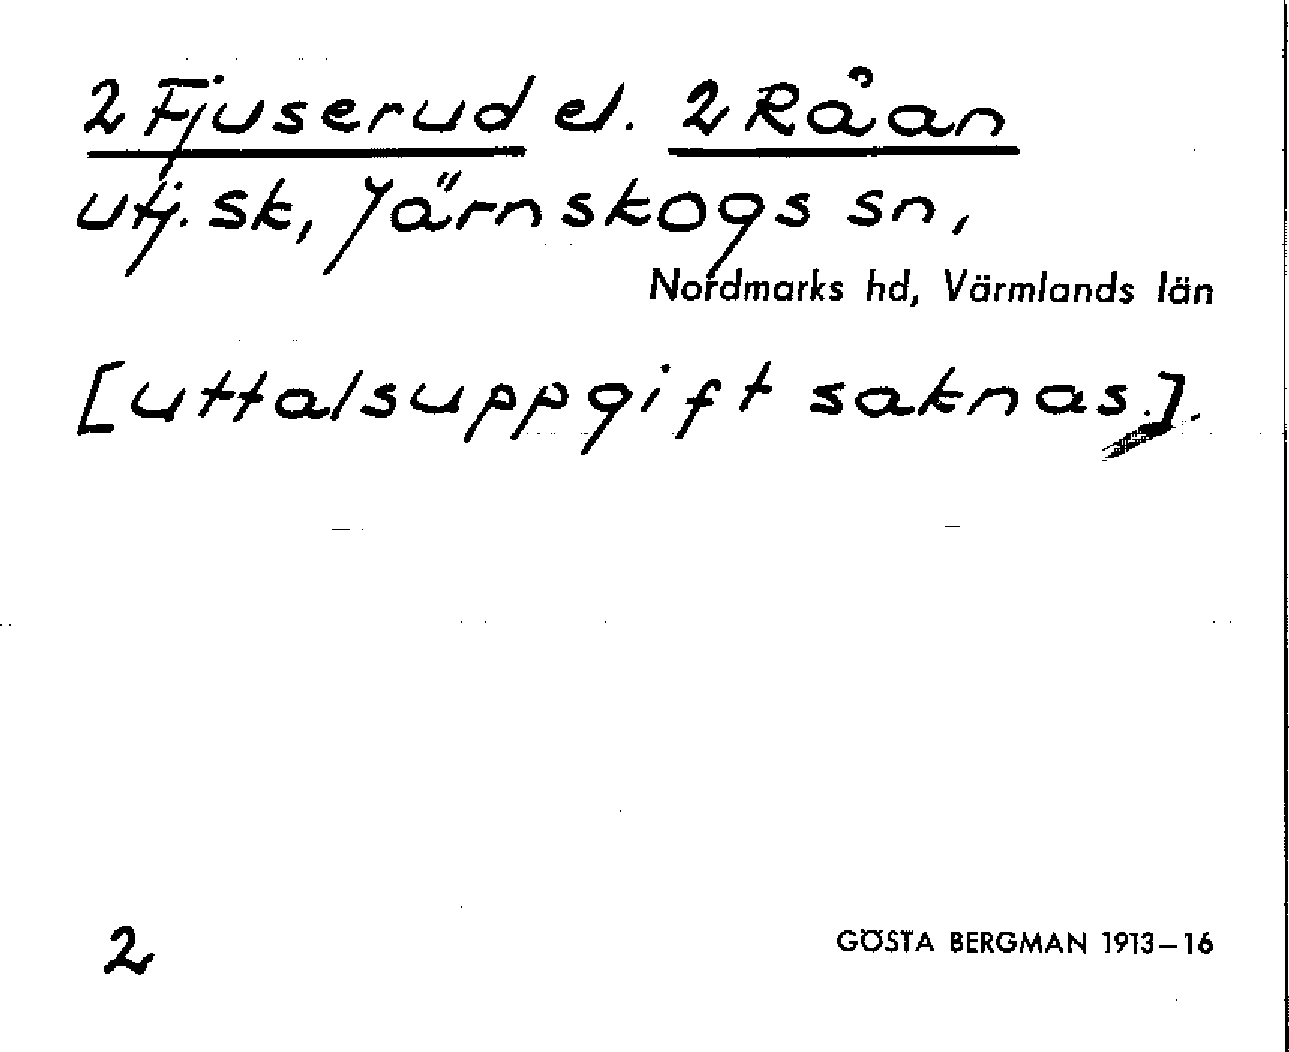 2 Fjuserud el. 2 Råan
utj. sk, Järnskogs sn,
Nordmarks hd, Värmlands län
[uttalsuppgift saknas.].
2
GÖSTA BERGMAN 1913–16